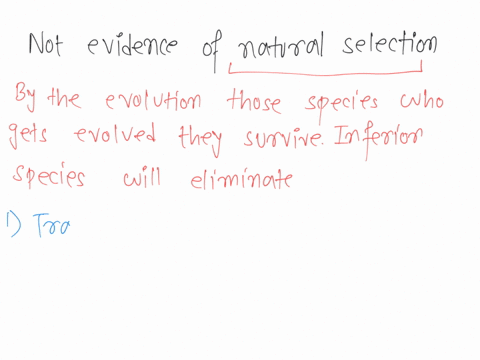 Not evidence of natural selection
By the evolution those species who
gets evolved they survive. Inferior
species will eliminate
1) Tra